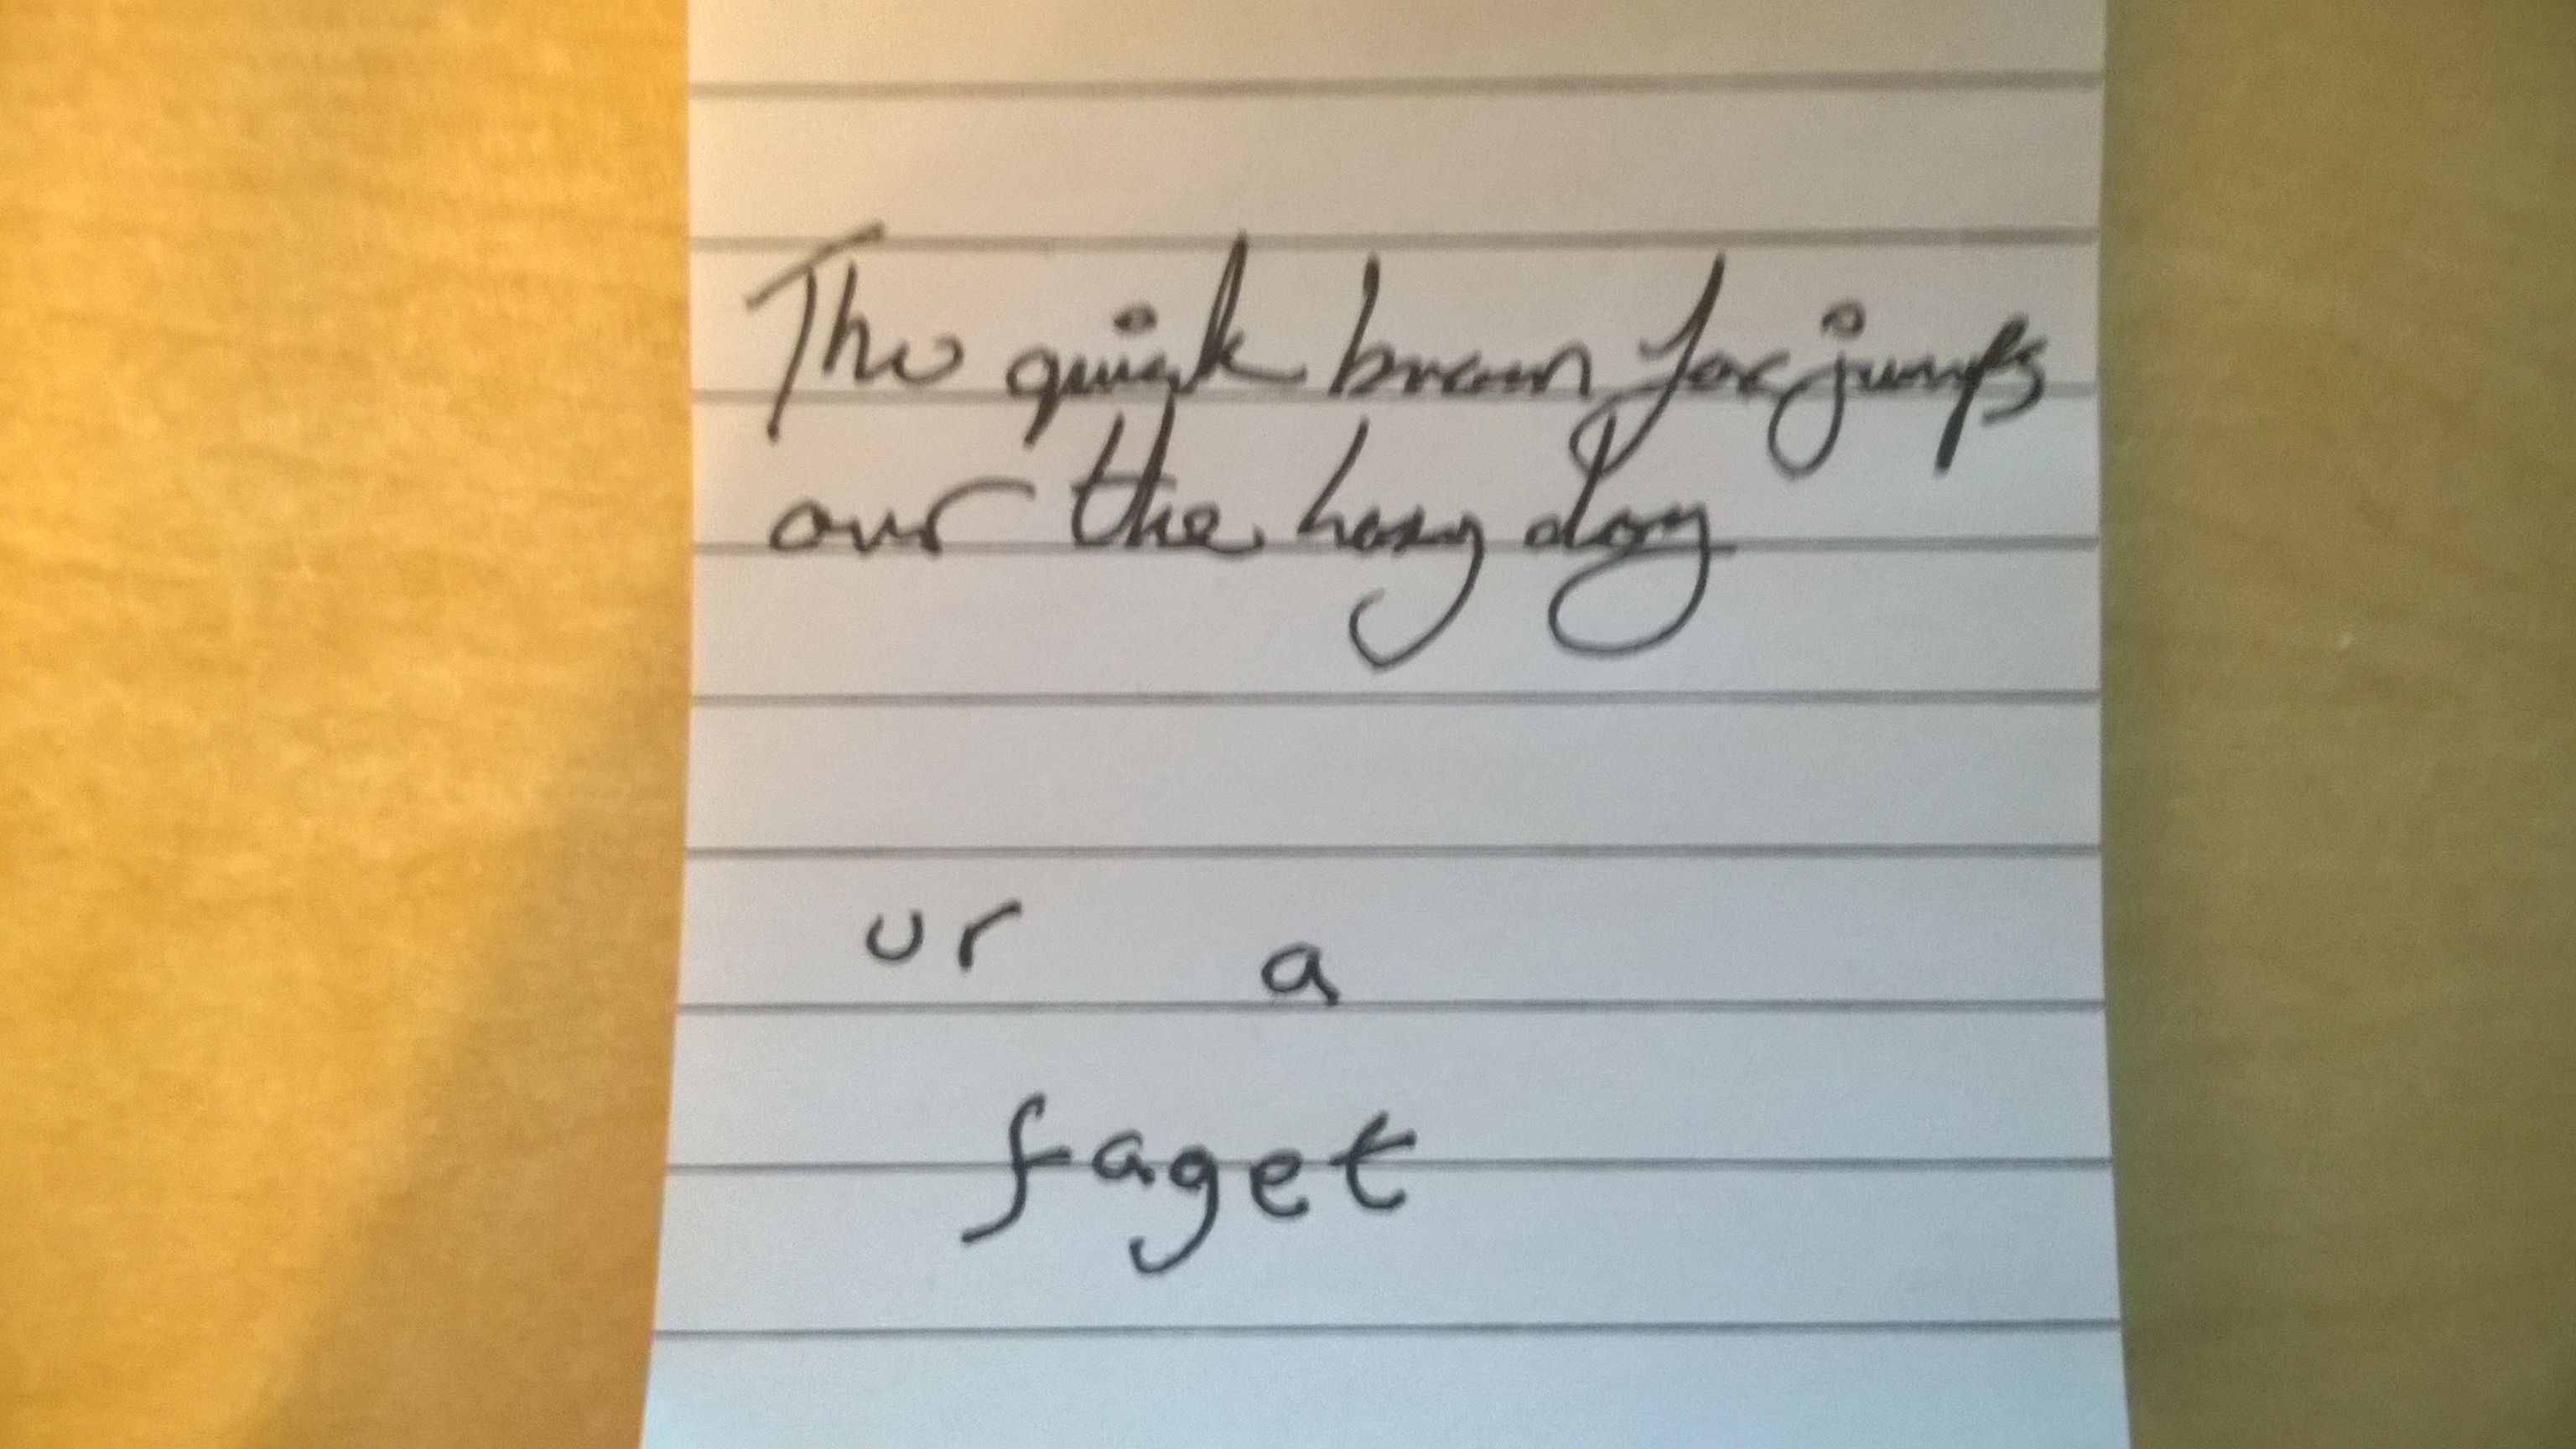 The quick brown fox jumps
over the lazy dog
ur a
faget